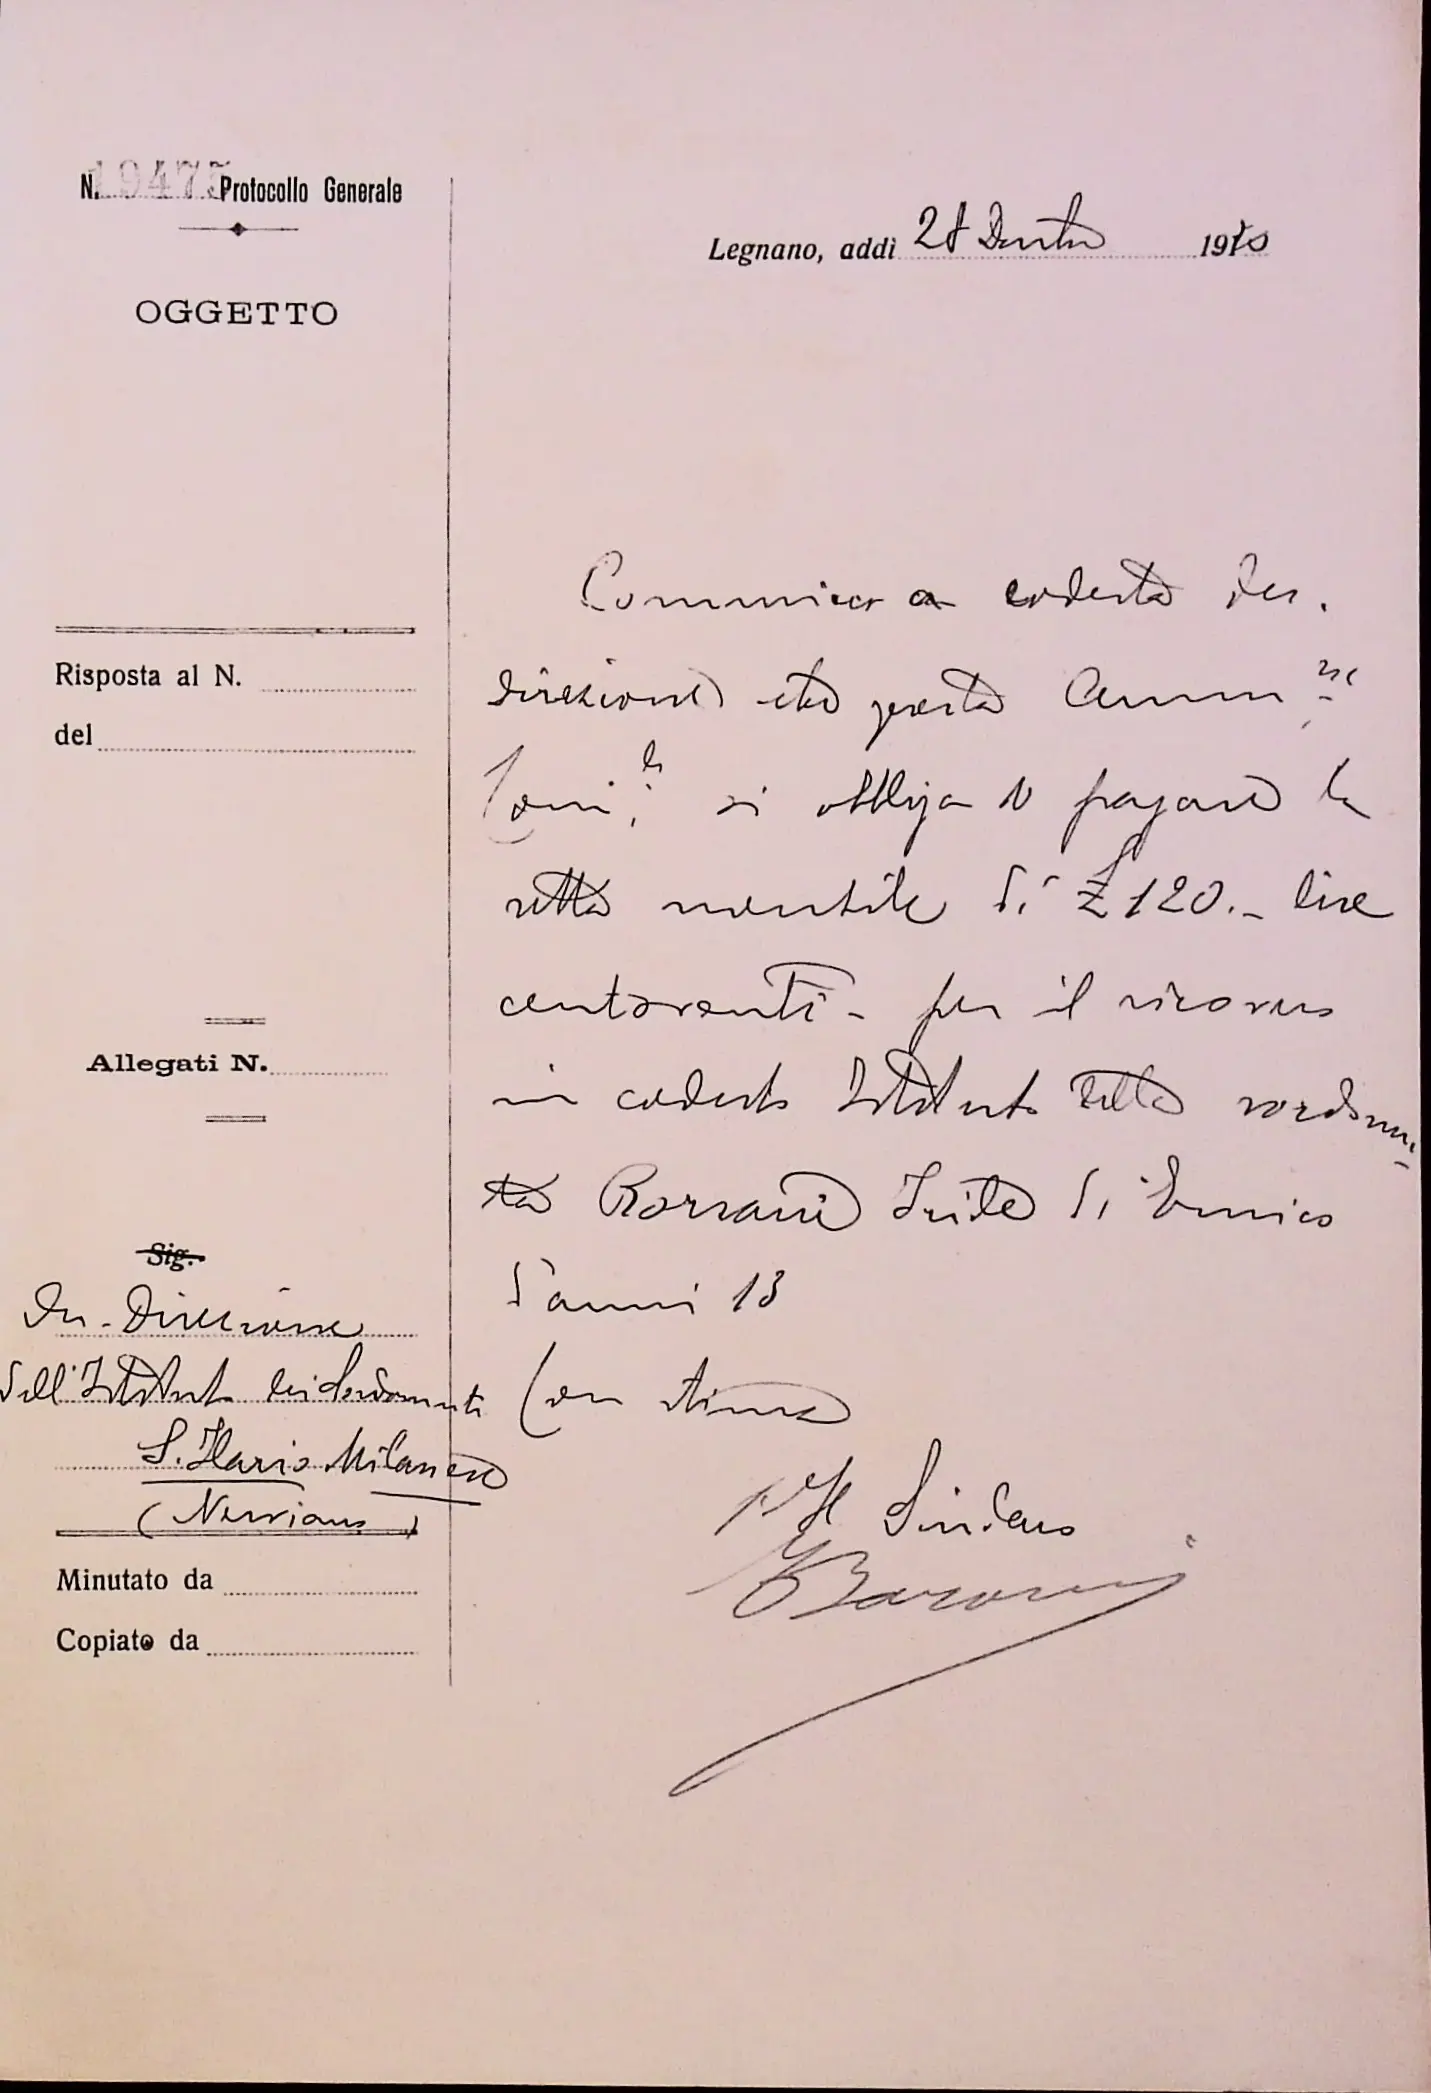 N. 19475 Protocollo Generale
Legnano, addì 28 19
OGGETTO
Comunico a codesta Per.
direzione che questa Amm.ne
Com.le si obbliga a pagare la
retta mensile di £ 120.- lire
centoventi - per il ricovero
in codesto Istituto della sordomu-
ta di Enrico
d'anni 13
Con stima
p. Il Sindaco
Risposta al N.
del
Allegati N.
Sig.
On. Direzione
dell'Istituto dei Sordomuti
S. Ilario Milanese
(Nerviano)
Minutato da
Copiato da